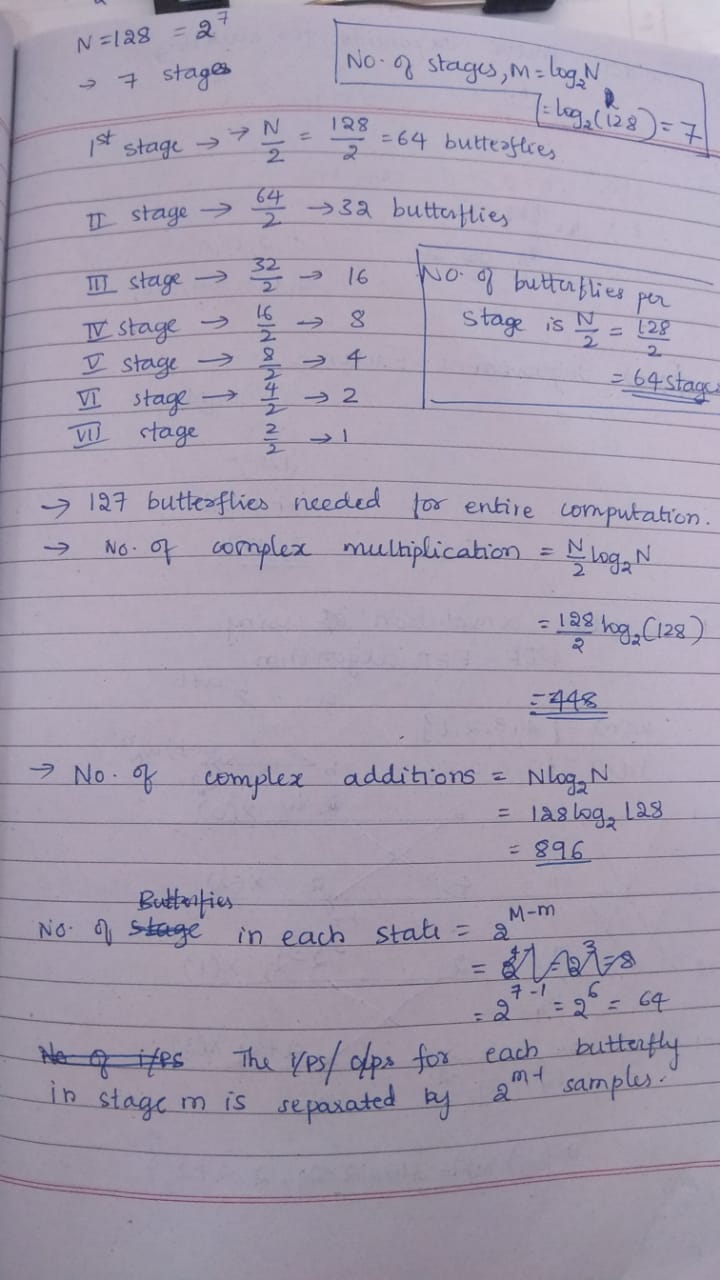 N=128 = 2^7
→ 7 stages
No. of stages, M = log₂N
= log₂(128) = 7
1st stage → → N/2 = 128/2 = 64 butterflies
II stage → 64/2 → 32 butterflies
III stage → 32/2 → 16
IV stage → 16/2 → 8
V stage → 8/2 → 4
VI stage → 4/2 → 2
VII stage 2/2 → 1
No. of butterflies per
stage is N/2 = 128/2
= 64 stages
→ 127 butterflies needed for entire computation.
→ No. of complex multiplication = N/2 log₂N
= 128/2 log₂(128)
= 448
→ No. of complex additions = Nlog₂N
= 128 log₂ 128
= 896
Butterfies
No. of stage in each state = 2^(M-m)
= 2^3 = 8
= 2^(7-1) = 2^6 = 64
No of i/ps The i/ps/o/ps for each butterfly
in stage m is separated by 2^(m-1) samples.